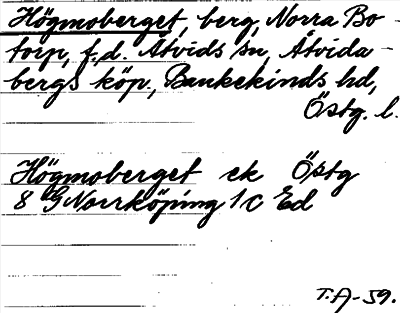 Högmoberget, berg, Norra Bo-
torp, f.d. Åtvids sn, Åtvida-
bergs köp., Bankekinds hd,
Östg. l.
Högmoberget ek Östg
8 G Norrköping 1 c Ed
T.A-59.